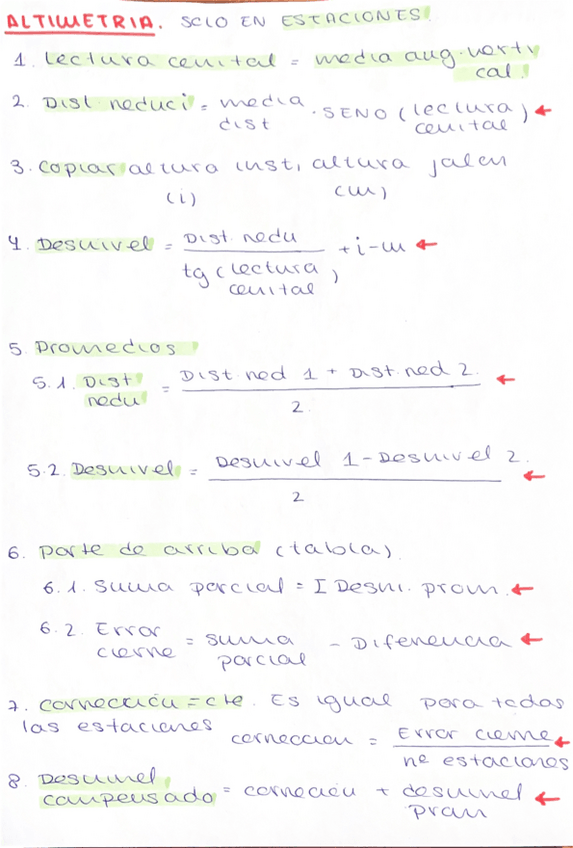 ALTIMETRIA. SOLO EN ESTACIONES
1. Lectura cenital = media ang. vorti
cal.
2. Dist reduci = media · SENO (lectura) ←
dist cenital
3. Copiar altura inst, altura jalon
(i) (m)
4. Desnivel = Dist. redu + i - m ←
tg (lectura)
cenital
5. Promedios
5.1. Dist = Dist. red 1 + Dist. red 2. ←
redu 2.
5.2. Desnivel = Desnivel 1 - Desnivel 2. ←
2
6. parte de arriba (tabla).
6.1. Suma parcial = Σ Desni. prom. ←
6.2. Error = suma - Diferencia ←
cierre parcial
7. corrección = cte. Es igual para todas
las estaciones
correccion = Error cierre ←
nº estaciones
8. Desnivel = correción + desnivel ←
compensado prom